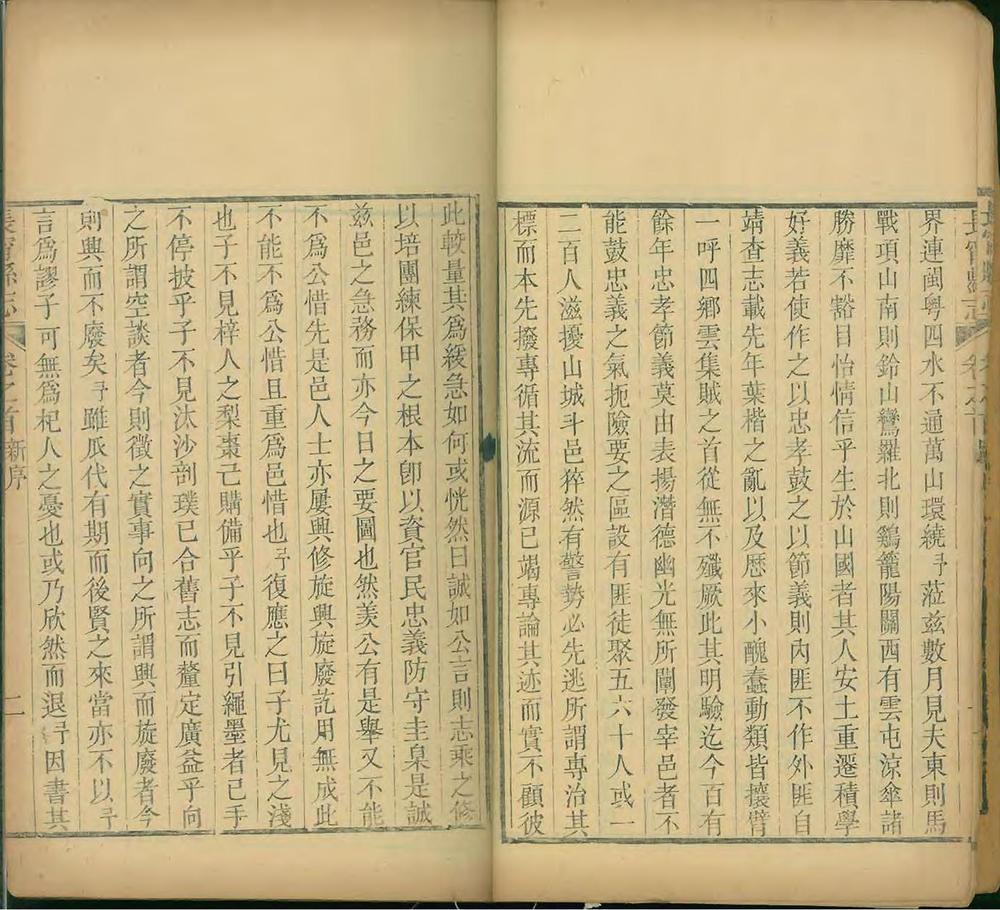 長甯縣志
界連閩粵四水不通萬山環繞予蒞兹數月見夫東則馬
戰項山南則鈴山鸞羅北則鷄籠陽關西有雲屯涼傘諸
勝靡不豁目怡情信乎生於山國者其人安土重遷積學
好義若使作之以忠孝鼓之以節義則內匪不作外匪自
靖查志載先年葉楷之亂以及歷來小醜蠢動類皆攘臂
一呼四鄉雲集賊之首從無不殲厥此其明驗迄今百有
餘年忠孝節義莫由表揚潛德幽光無所闡發宰邑者不
能鼓忠義之氣扼險要之區設有匪徒聚五六十人或一
二百人滋擾山城斗邑猝然有警勢必先逃所謂專治其
標而本先撥專循其流而源已竭專論其迹而實不顧彼
此較量其爲緩急如何或恍然曰誠如公言則志乘之修
以培團練保甲之根本卽以資官民忠義防守圭臬是誠
兹邑之急務而亦今日之要圖也然羨公有是舉又不能
不爲公惜先是邑人士亦屢興修旋興旋廢訖用無成此
不能不爲公惜且重爲邑惜也予復應之曰子尤見之淺
也子不見梓人之梨棗已購備乎子不見引繩墨者已手
不停披乎子不見汰沙剖璞已合舊志而釐定廣益乎向
之所謂空談者今則徵之實事向之所謂興而旋廢者今
則興而不廢矣予雖瓜代有期而後賢之來當亦不以予
言爲謬子可無爲杞人之憂也或乃欣然而退予因書其
長甯縣志 卷之首 新序 二